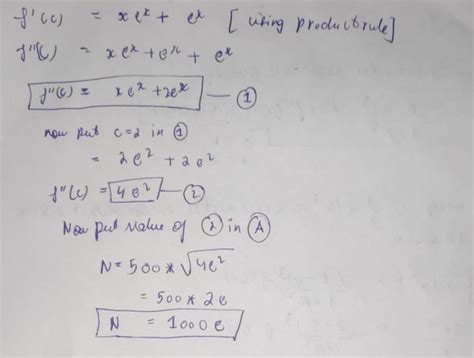 f'(c) = xeˣ + eˣ [using product rule]
f''(c) = xeˣ + eˣ + eˣ
f''(c) = xeˣ + 2eˣ — ①
now put c=2 in ①
= 2e² + 2e²
f''(c) = 4e² — ②
Now put value of ② in Ⓐ
N = 500 * √4e²
= 500 * 2e
N = 1000e